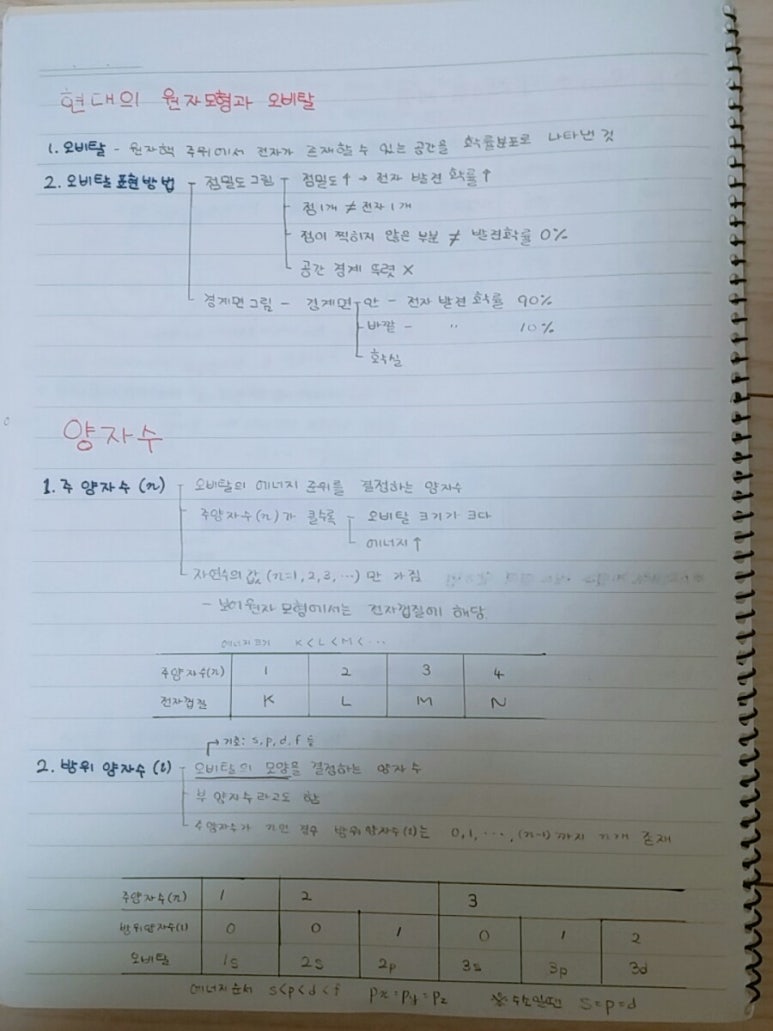 현대의 원자모형과 오비탈
1. 오비탈 - 원자핵 주위에서 전자가 존재할 수 있는 공간을 확률분포로 나타낸 것
2. 오비탈 표현 방법 점밀도 그림 점밀도↑ → 전자 발견 확률↑
점 1개 ≠ 전자 1개
점이 찍히지 않은 부분 ≠ 발견확률 0%
공간 경계 뚜렷 X
경계면 그림 - 경계면 안 - 전자 발견 확률 90%
바깥 - 〃 10%
확실
양자수
1. 주 양자수 (n) 오비탈의 에너지 준위를 결정하는 양자수
주양자수(n)가 클수록 오비탈 크기가 크다
에너지↑
자연수의 값 (n=1, 2, 3, ···) 만 가짐
- 보어 원자 모형에서는 전자껍질에 해당
에너지 크기 K < L < M < ···
주양자수(n) 1 2 3 4
전자껍질 K L M N
→ 기호: s, p, d, f 등
2. 방위 양자수 (l) 오비탈의 모양을 결정하는 양자수
부 양자수라고도 함
주양자수가 n인 경우 방위양자수(l)는 0, 1, ···, (n-1) 까지 n개 존재
주양자수(n) 1 2 3
방위양자수(l) 0 0 1 0 1 2
오비탈 1s 2s 2p 3s 3p 3d
에너지순서 s<p<d<f Px=Py=Pz ※수소일땐 S=p=d